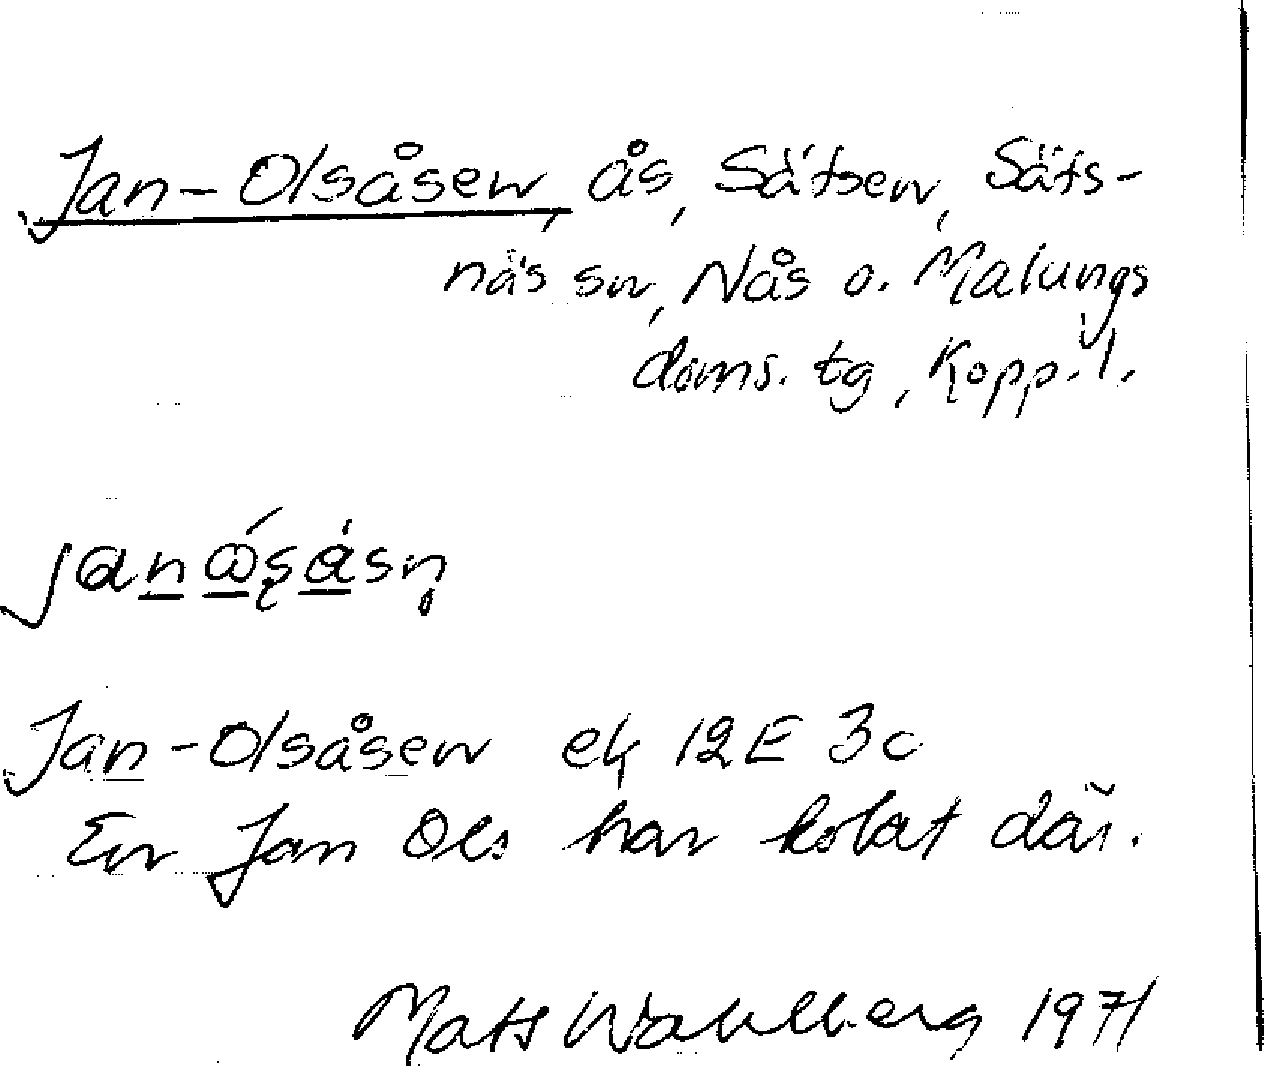 Jan-Olsåsen, ås, Sätsen, Säts-
näs sn, Nås o. Malungs
doms. tg, Kopp. l.
Jan-Olsåsen ek 12E 3c
En Jan Ols har kolat där.
Mats Wahlberg 1971